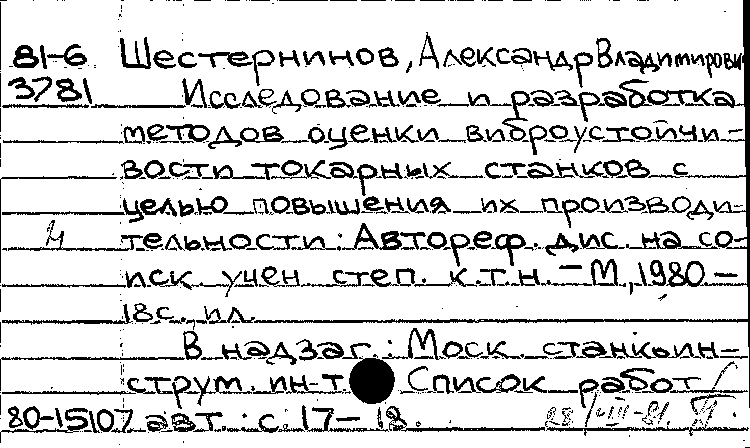 81-6 Шестернинов, Александр Владимирович
3781 Исследование и разработка
методов оценки виброустойчи-
вости токарных станков с
целью повышения их производи-
тельности: Автореф. дис. на со-
иск. учен степ. к.т.н. – М., 1980 –
18с., ил.
В надзаг.: Моск. станкоин-
струм. ин-т Список работ
80-15107 авт.: с. 17–18.